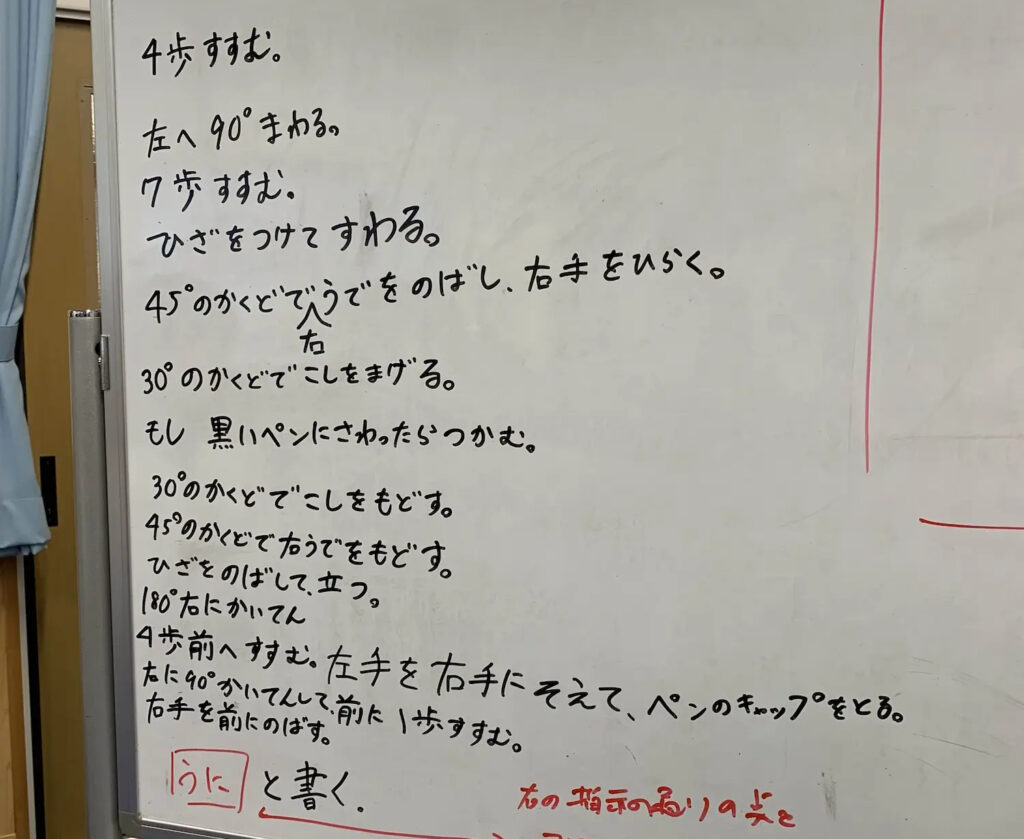 4歩すすむ。
左へ90°まわる。
7歩すすむ。
ひざをつけてすわる。
45°のかくどで右うでをのばし、右手をひらく。
30°のかくどでこしをまげる。
もし 黒いペンにさわったらつかむ。
30°のかくどでこしをもどす。
45°のかくどで右うでをもどす。
ひざをのばして、立つ。
180°右にかいてん
4歩前へすすむ。左手を右手にそえて、ペンのキャップをとる。
右に90°かいてんして、前に1歩すすむ。
右手を前にのばす。
うにと書く.
右の指示の通りの